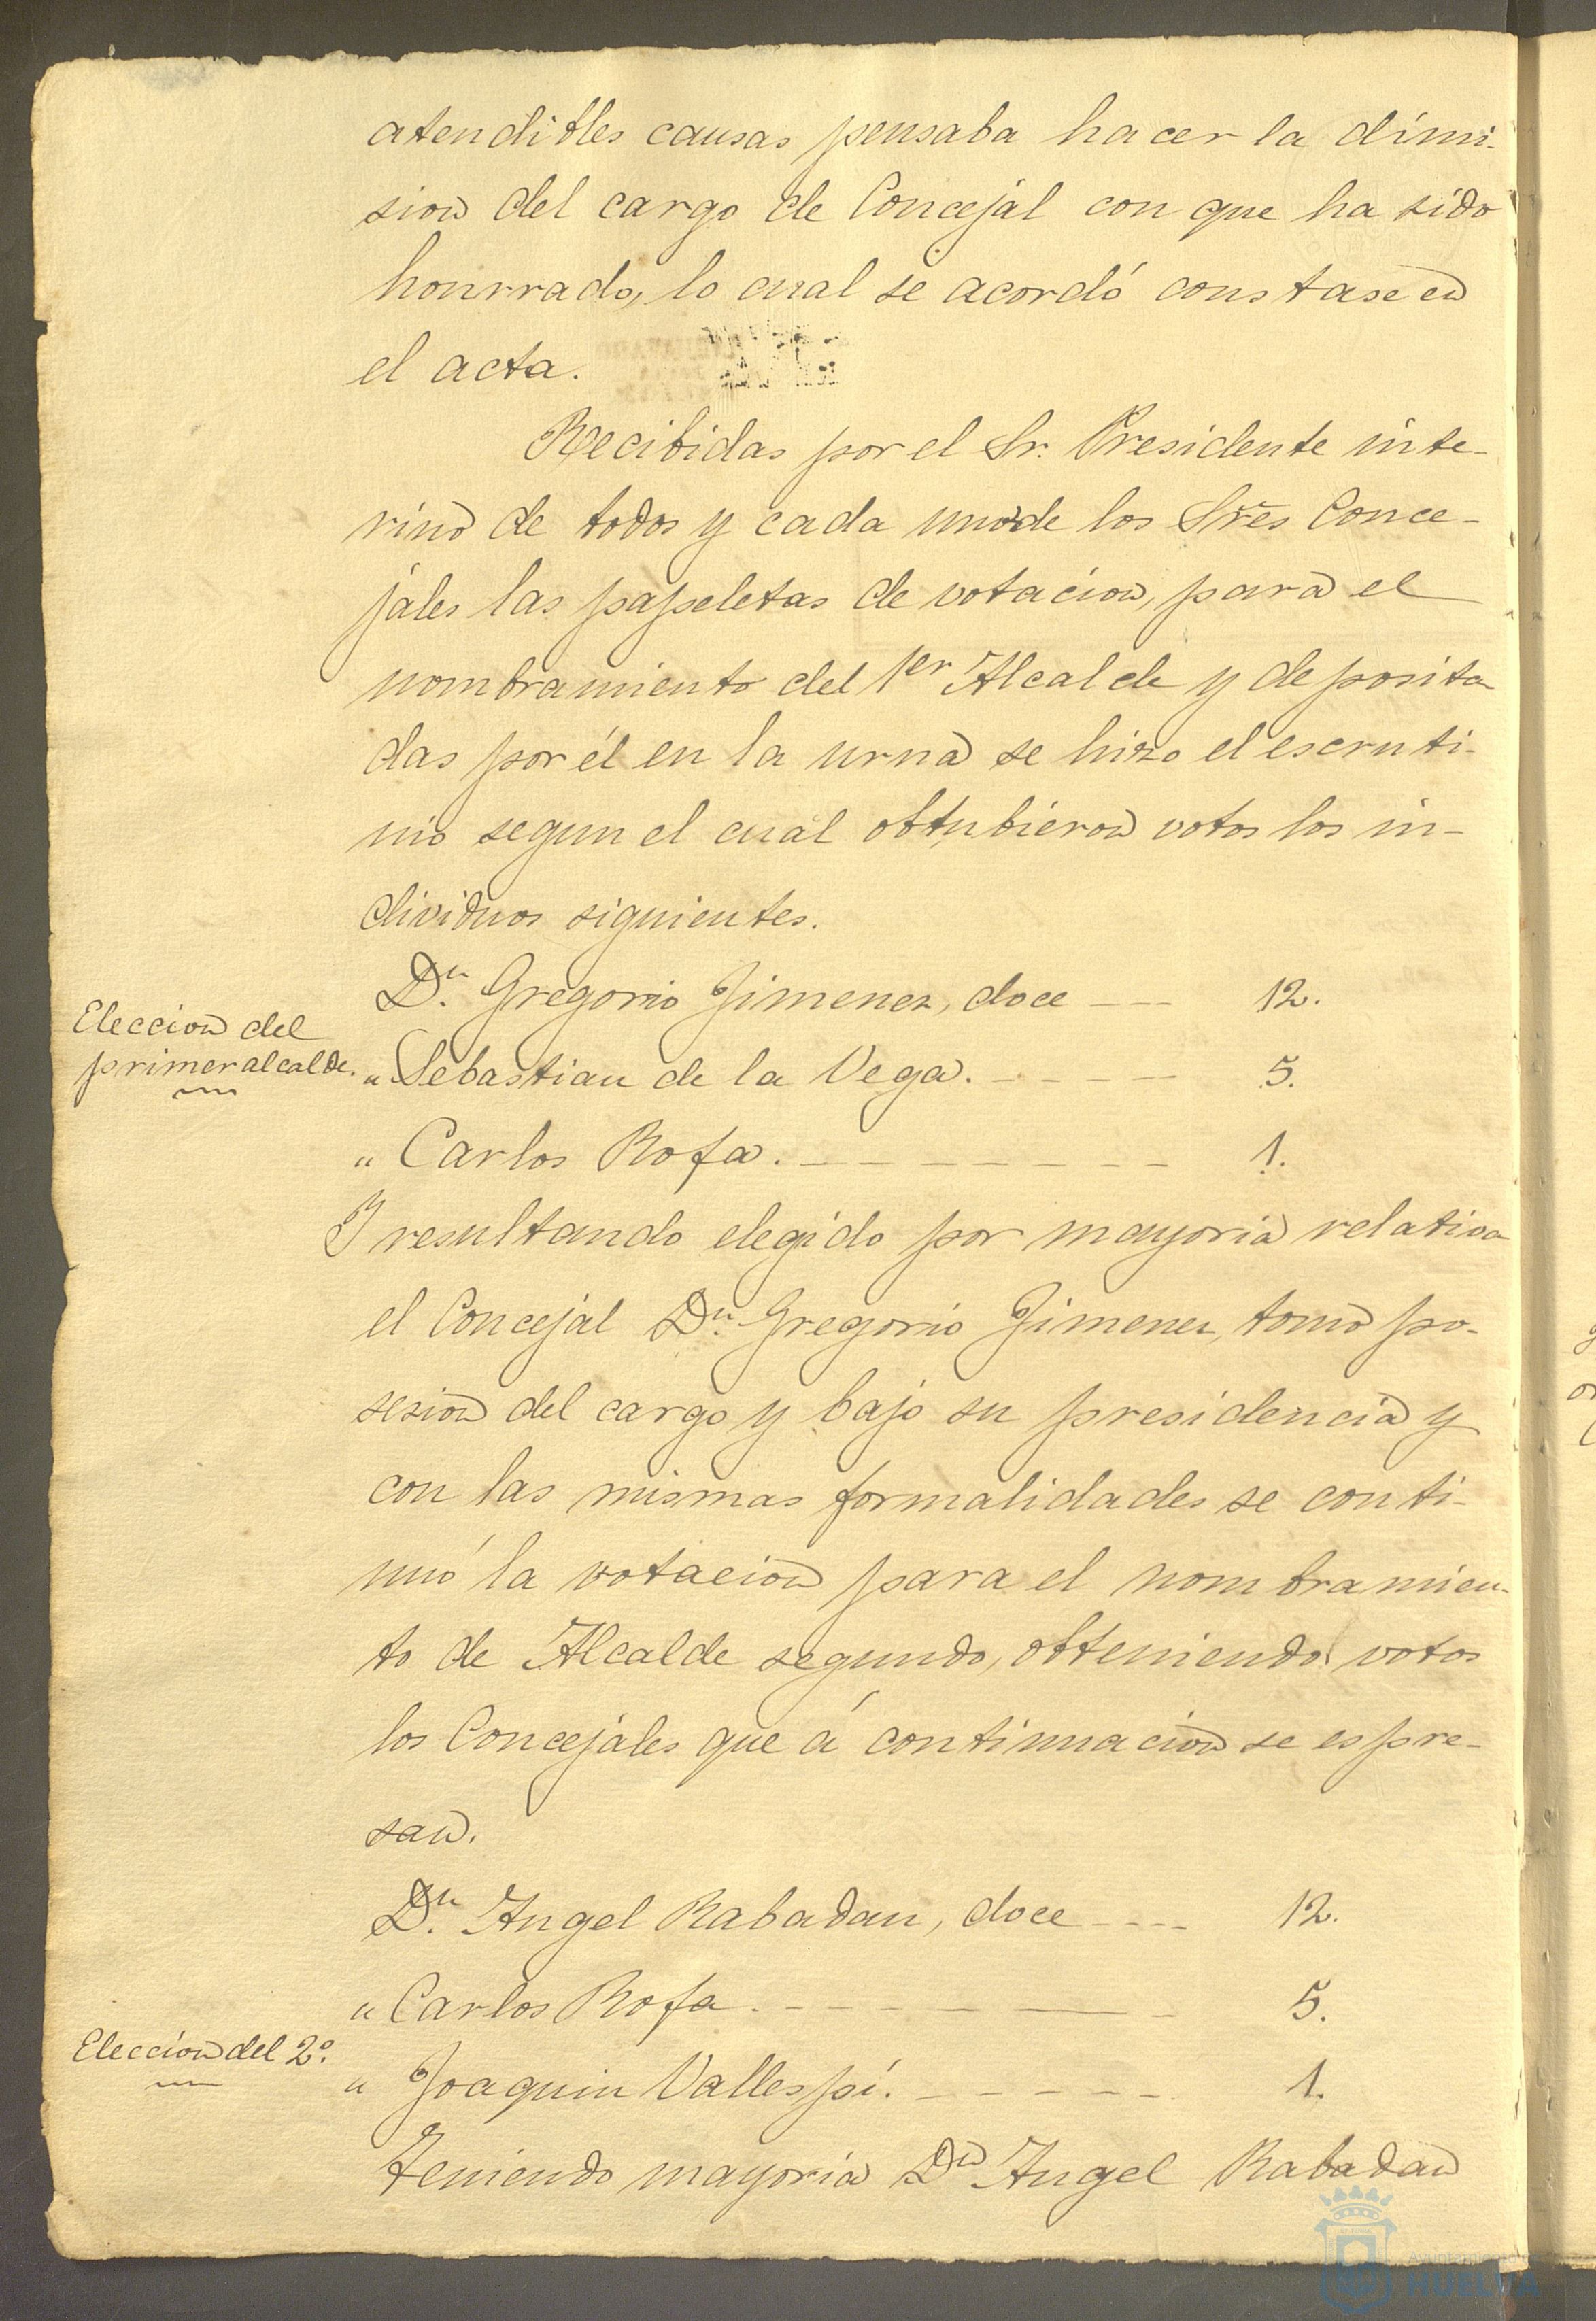 atendibles causas pensaba hacer la dimi-
sion del cargo de Concejal con que ha sido
honrrado, lo cual se acordó constase en
el acta.
Recibidas por el Sr. Presidente inte-
rino de todos y cada uno de los Sres Conce-
jales las papeletas de votacion, para el
nombramiento del 1er Alcalde y deposita
das por él en la urna se hizo el escruti-
nio segun el cual obtubieron votos los in-
dividuos siguientes.
Dn. Gregorio Jimenez, doce --- 12.
Eleccion del
primer alcalde.
" Sebastian de la Vega. ----- 5.
" Carlos Rofa. -------- 1.
Y resultando elegido por mayoria relativa
el Concejal Dn. Gregorio Jimenez, tomó po-
sesion del cargo y bajo su presidencia y
con las mismas formalidades se conti-
nuó la votacion para el nombramien-
to de Alcalde segundo, obteniendo votos
los Concejales que á continuacion se espre-
san.
Dn. Angel Rabadan, doce ---- 12.
" Carlos Rofa. -------- 5.
Eleccion del 2º.
" Joaquin Vallespí. ------ 1.
Teniendo mayoria Dn Angel Rabadan
Ayuntamiento
HUELVA